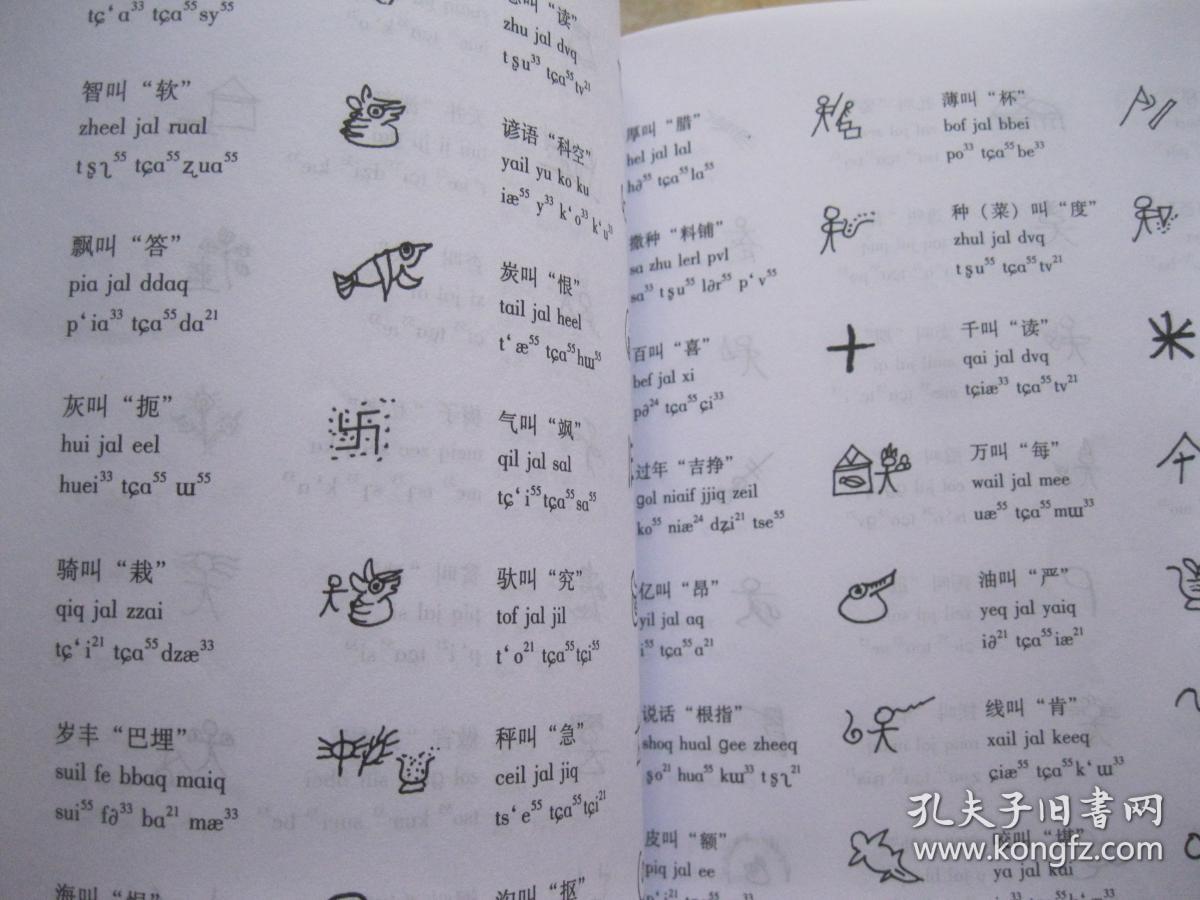 tɕ‘a³³ tɕɑ⁵⁵sy⁵⁵
智叫“软”
zheel jal rual
tʂʅ⁵⁵ tɕɑ⁵⁵ʐuɑ⁵⁵
飘叫“答”
pia jal ddaq
p‘ia³³ tɕɑ⁵⁵dɑ²¹
灰叫“扼”
hui jal eel
huei³³ tɕɑ⁵⁵ ɯ⁵⁵
骑叫“栽”
qiq jal zzai
tɕ‘i²¹ tɕɑ⁵⁵dzæ³³
岁丰“巴埋”
suil fe bbaq maiq
sui⁵⁵ fə³³ bɑ²¹ mæ³³
叫“读”
zhu jal dvq
tʂu³³ tɕɑ⁵⁵tv²¹
谚语“科空”
yail yu ko ku
iæ⁵⁵ y³³ k‘o³³ k‘u³³
炭叫“恨”
tail jal heel
t‘æ⁵⁵ tɕɑ⁵⁵hɯ⁵⁵
气叫“飒”
qil jal sal
tɕ‘i⁵⁵tɕɑ⁵⁵sɑ⁵⁵
驮叫“究”
tof jal jil
t‘o²¹ tɕɑ⁵⁵tɕi⁵⁵
秤叫“急”
ceil jal jiq
ts‘e⁵⁵ tɕɑ⁵⁵tɕi²¹
沟叫“抠”
厚叫“腊”
hel jal lal
hə⁵⁵ tɕɑ⁵⁵lɑ⁵⁵
撒种“料铺”
sa zhu lerl pvl
sa³³ tʂu⁵⁵ lər⁵⁵ p‘v⁵⁵
百叫“喜”
bef jal xi
pə²⁴ tɕɑ⁵⁵ çi³³
过年“吉挣”
gol niaif jjiq zeil
ko⁵⁵ niæ²⁴ dʑi²¹ tse⁵⁵
亿叫“昂”
yil jal aq
i⁵⁵ tɕɑ⁵⁵ɑ²¹
说话“根指”
shoq hual gee zheeq
ʂo²¹ huɑ⁵⁵ kɯ³³ tʂʅ²¹
皮叫“额”
piq jal ee
薄叫“杯”
bof jal bbei
po³³ tɕɑ⁵⁵be³³
种（菜）叫“度”
zhul jal dvq
tʂu⁵⁵ tɕɑ⁵⁵tv²¹
千叫“读”
qai jal dvq
tɕiæ³³ tɕɑ⁵⁵tv²¹
万叫“每”
wail jal mee
uæ⁵⁵ tɕɑ⁵⁵mɯ³³
油叫“严”
yeq jal yaiq
iə²¹ tɕɑ⁵⁵iæ²¹
线叫“肯”
xail jal keeq
çiæ⁵⁵ tɕɑ⁵⁵k‘ɯ³³
ya jal kai
孔夫子旧书网
www.kongfz.com